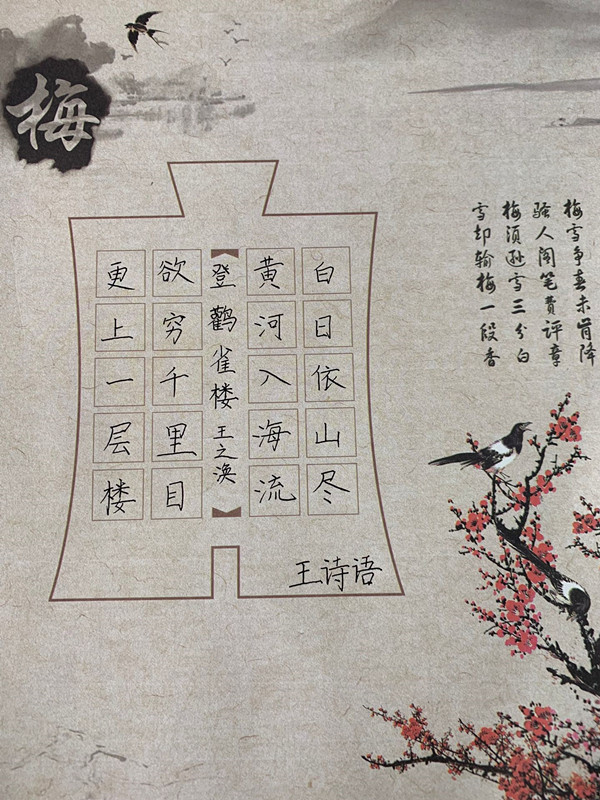 梅
梅雪争春未肯降
骚人阁笔费评章
梅须逊雪三分白
雪却输梅一段香
白日依山尽
黄河入海流
登鹳雀楼 王之涣
欲穷千里目
更上一层楼
王诗语